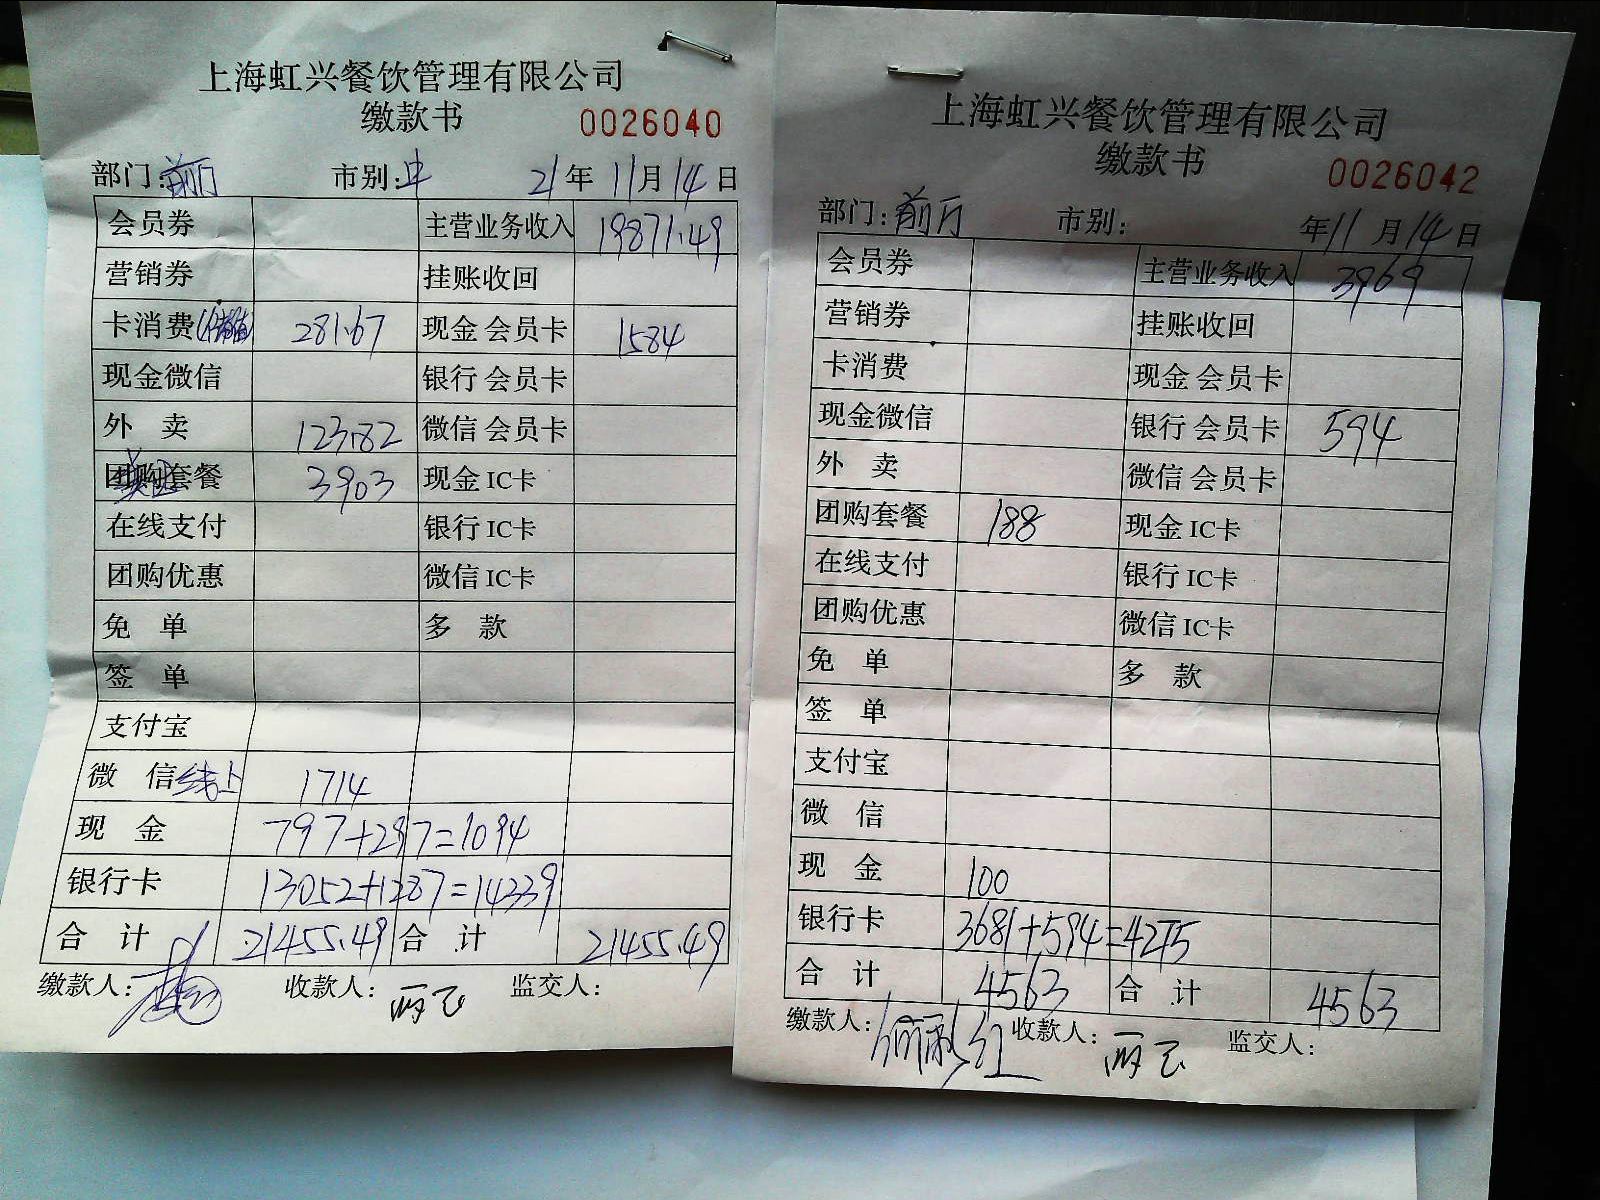 上海虹兴餐饮管理有限公司
缴款书 0026040
部门:前厅 市别:中 21年11月14日
会员券 主营业务收入 19871.49
营销券 挂账收回
卡消费(储值) 281.67 现金 会员卡 1584
现金微信 银行 会员卡
外 卖 123.82 微信 会员卡
团购套餐 3903 现金 IC卡
在线支付 银行 IC卡
团购优惠 微信 IC卡
免 单 多 款
签 单
支付宝
微 信 线上 1714
现 金 797+297=1094
银行卡 13052+1287=14339
合 计 21455.49 合 计 21455.49
缴款人: 收款人: 监交人:
上海虹兴餐饮管理有限公司
缴款书 0026042
部门:前厅 市别: 年11月14日
会员券 主营业务收入 3969
营销券 挂账收回
卡消费 现金 会员卡
现金微信 银行 会员卡 594
外 卖 微信 会员卡
团购套餐 188 现金 IC卡
在线支付 银行 IC卡
团购优惠 微信 IC卡
免 单 多 款
签 单
支付宝
微 信
现 金 100
银行卡 3681+594=4275
合 计 4563 合 计 4563
缴款人: 收款人: 监交人: